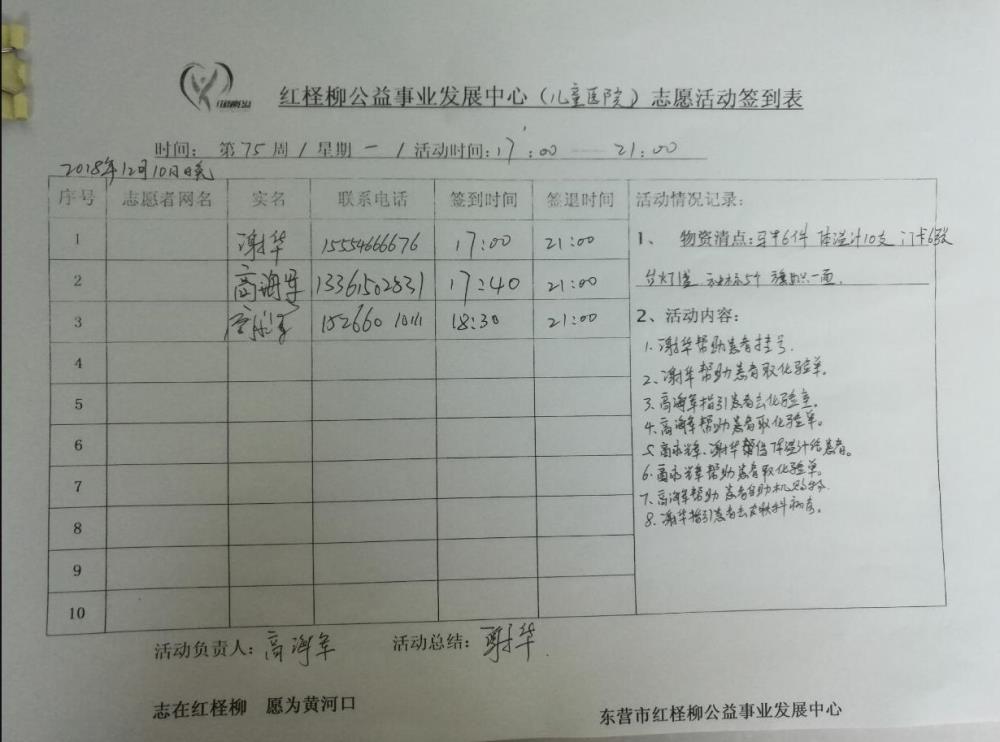 红柽柳公益事业发展中心（儿童医院）志愿活动签到表
时间： 第75周 / 星期一 / 活动时间：17：00 —— 21：00
2018年12月10日
序号 志愿者网名 实名 联系电话 签到时间 签退时间 活动情况记录：
1 谢华 15554666676 17：00 21：00
1、 物资清点：马甲6件 体温计10支 门卡6张
2 高海军 13361502831 17：40 21：00
台灯1盏 5个 一面
3 152660 10111 18：30 21：00
2、活动内容：
1. 谢华帮助患者挂号.
4
2、谢华帮助患者取化验单。
5
3、高海军指引患者去化验室。
4、高海军帮助患者取化验单。
6
5、谢华 体温计给患者。
6、帮助患者取化验单。
7
7、高海军帮助患者自助机
8
8、谢华指引患者去
9
10
活动负责人：高海军 活动总结：谢华
志在红柽柳 愿为黄河口
东营市红柽柳公益事业发展中心